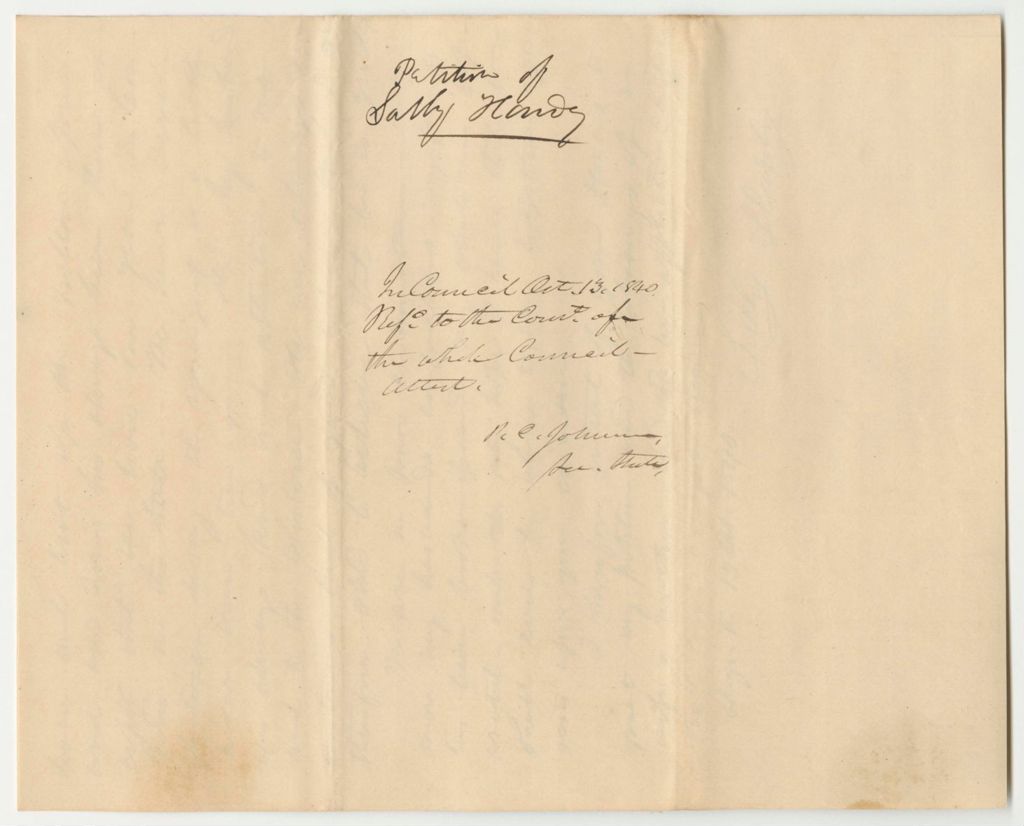 Petition of
Sally Handy
In Council Oct. 13, 1840.
Refd to the Comt. of
the whole Council—
Attest.
P. C. Johnson,
Sec. State,